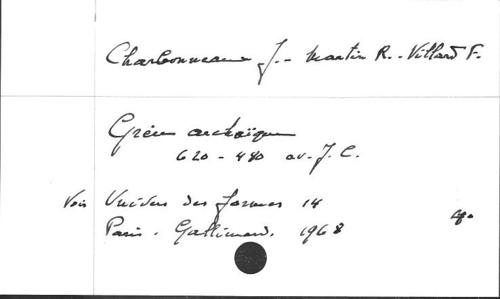 Charbonneaux J. - Martin R. - Villard F.
Grèce archaïque
620 - 480 av. J. C.
Voir Univers des formes 14
Paris. Gallimard. 1968